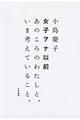 小島慶子
女子アナ以前
あのころのわたしと、
いま考えていること。